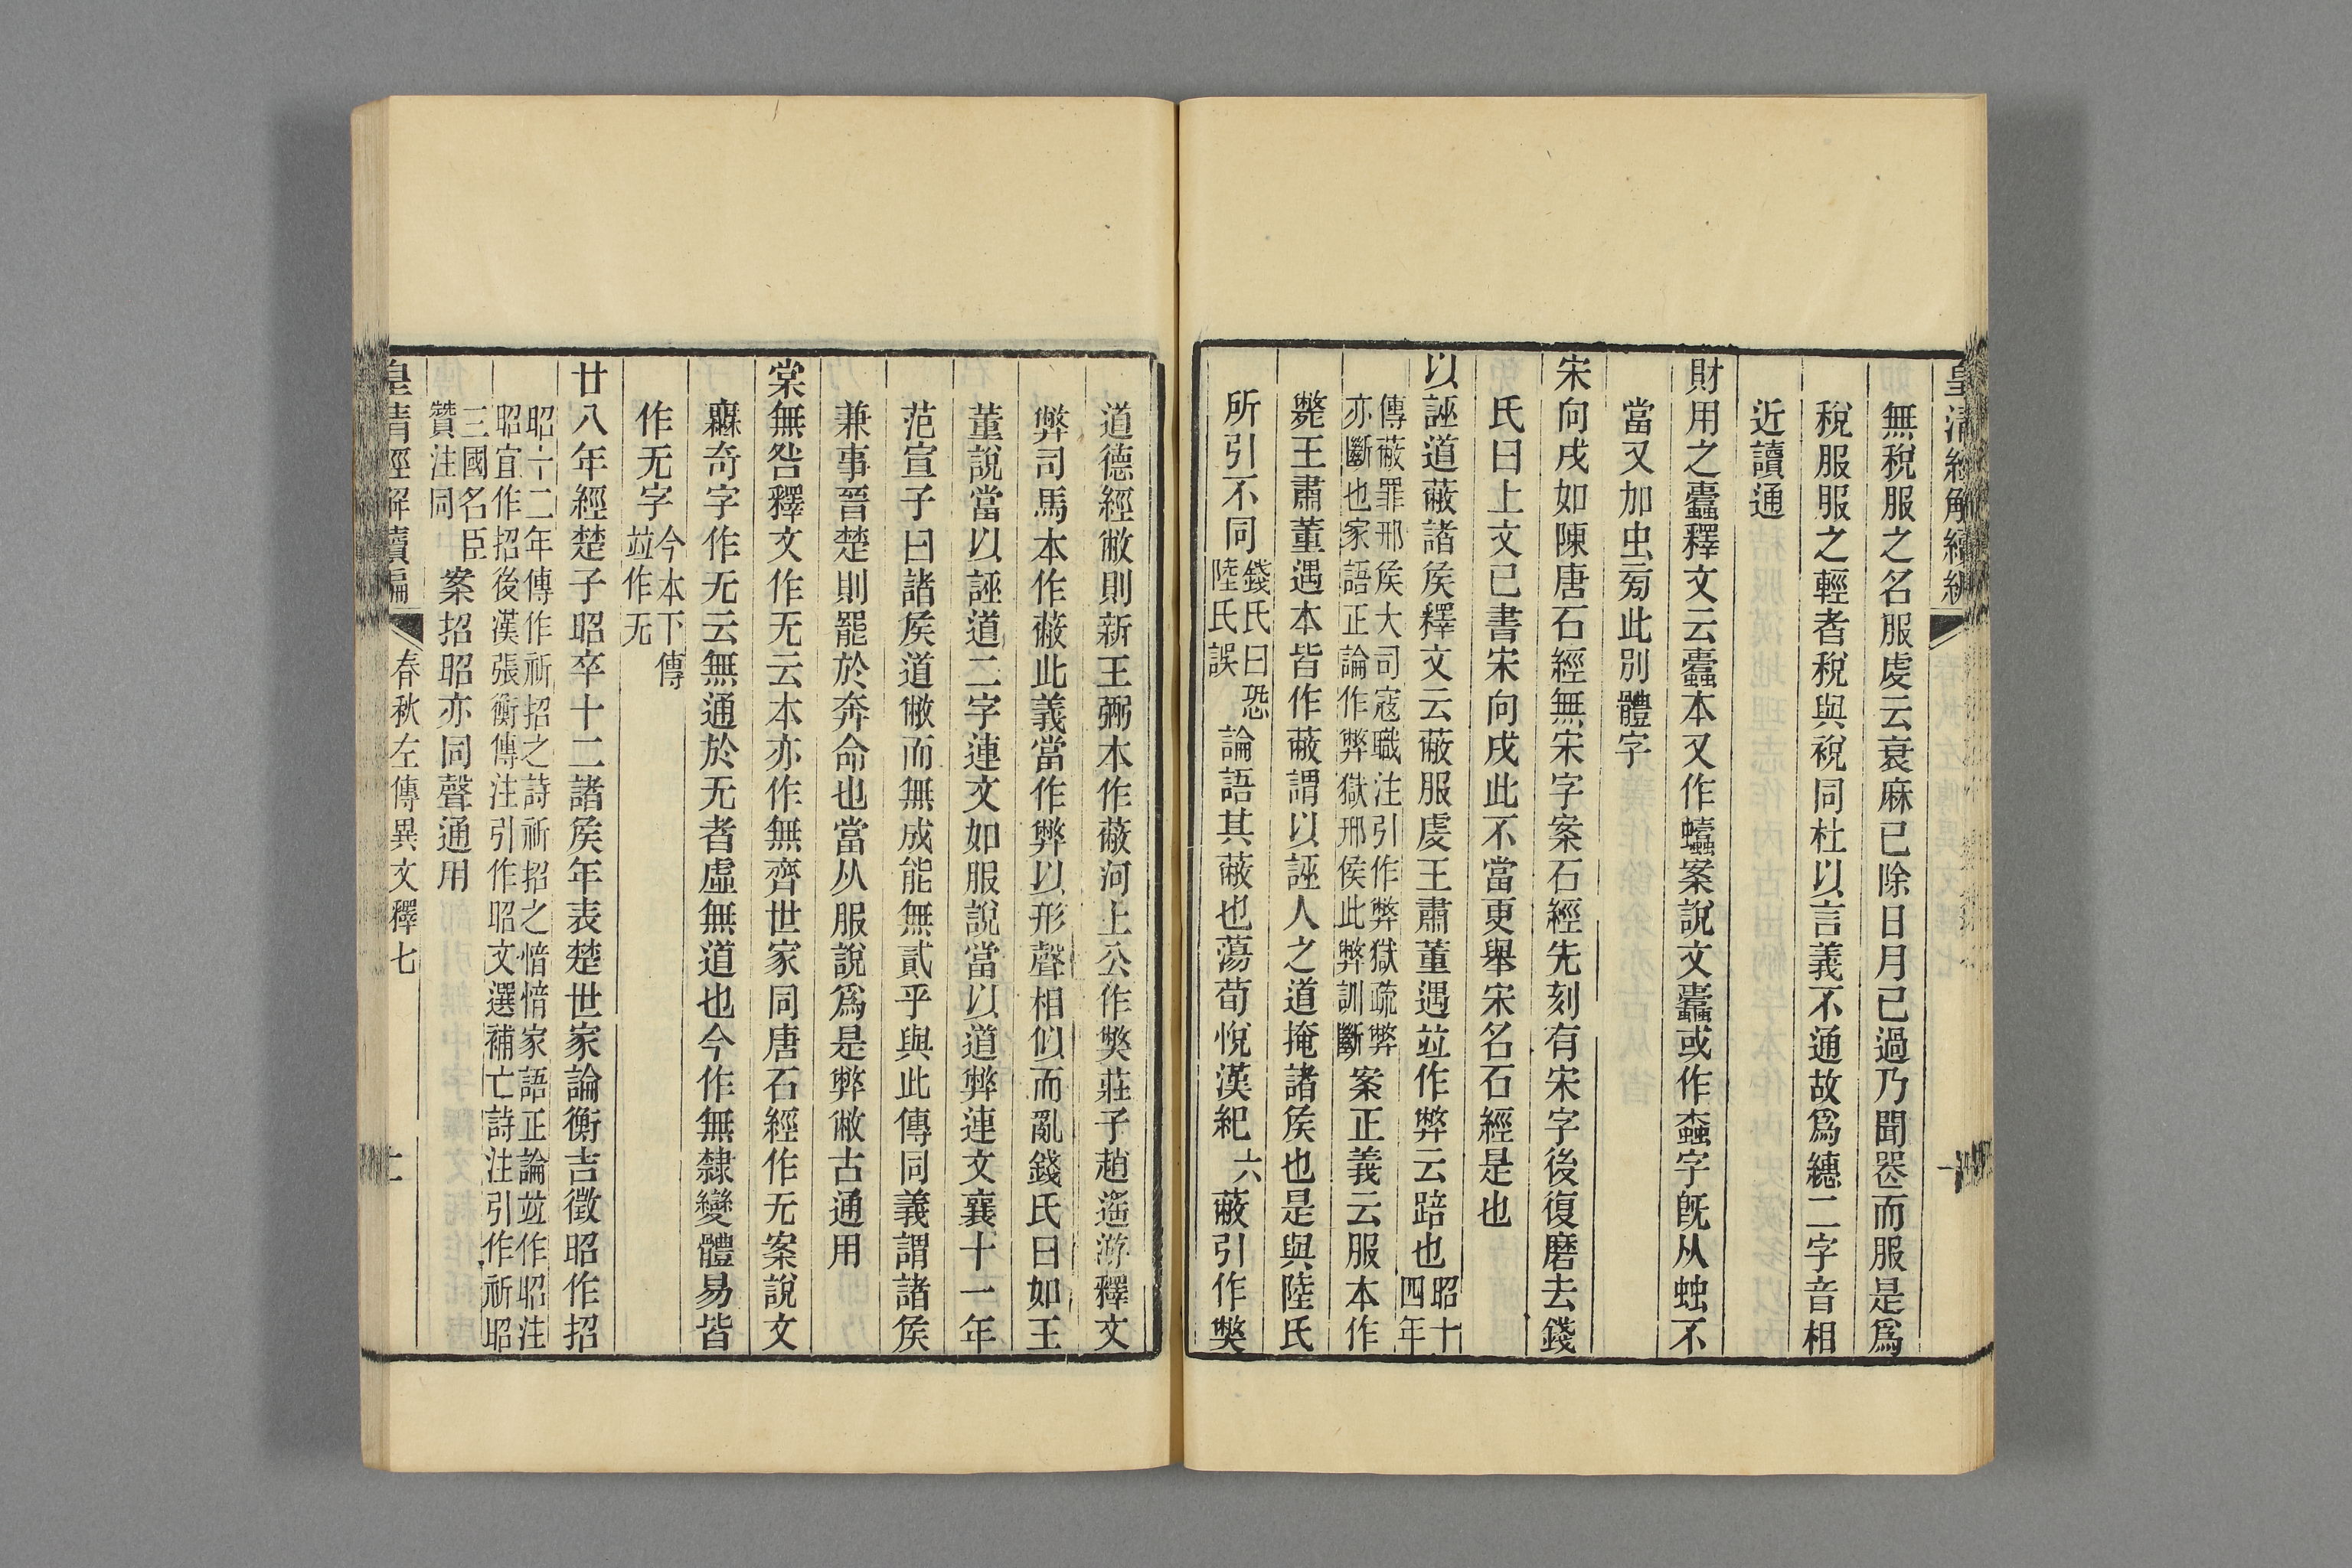 皇清經解續編
無稅服之名服虔云衰麻已除日月已過乃聞喪而服是爲
稅服服之輕者稅與裞同杜以言義不通故爲繐二字音相
近讀通
財用之蠹釋文云蠹本又作螙案說文蠹或作螙字旣从䖵不
當又加虫㫄此別體字
宋向戌如陳唐石經無宋字案石經先刻有宋字後復磨去錢
氏曰上文已書宋向戌此不當更舉宋名石經是也
以誣道蔽諸矦釋文云蔽服虔王肅董遇竝作弊云踣也昭十四年
傳蔽罪邢矦大司寇職注引作弊獄疏弊亦斷也家語正論作弊獄邢侯此弊訓斷案正義云服本作
斃王肅董遇本皆作蔽謂以誣人之道掩諸矦也是與陸氏
所引不同錢氏曰恐陸氏誤論語其蔽也蕩荀悅漢紀六蔽引作獘
道德經敝則新王弼本作蔽河上公作獘莊子逍遙游釋文
弊司馬本作蔽此義當作弊以形聲相似而亂錢氏曰如王
董說當以誣道二字連文如服說當以道弊連文襄十一年
范宣子曰諸矦道敝而無成能無貳乎與此傳同義謂諸矦
兼事晉楚則罷於奔命也當从服說爲是弊敝古通用
棠無咎釋文作无云本亦作無齊世家同唐石經作无案說文
䍢奇字作无云無通於无者虛無道也今作無隸變體易皆
作无字今本下傳竝作无
廿八年經楚子昭卒十二諸矦年表楚世家論衡吉徵昭作招
昭十二年傳作祈招之詩祈招之愔愔家語正論竝作昭注昭宜作招後漢張衡傳注引作昭文選補亡詩注引作祈昭
三國名臣贊注同案招昭亦同聲通用
皇清經解續編 春秋左傳異文釋七